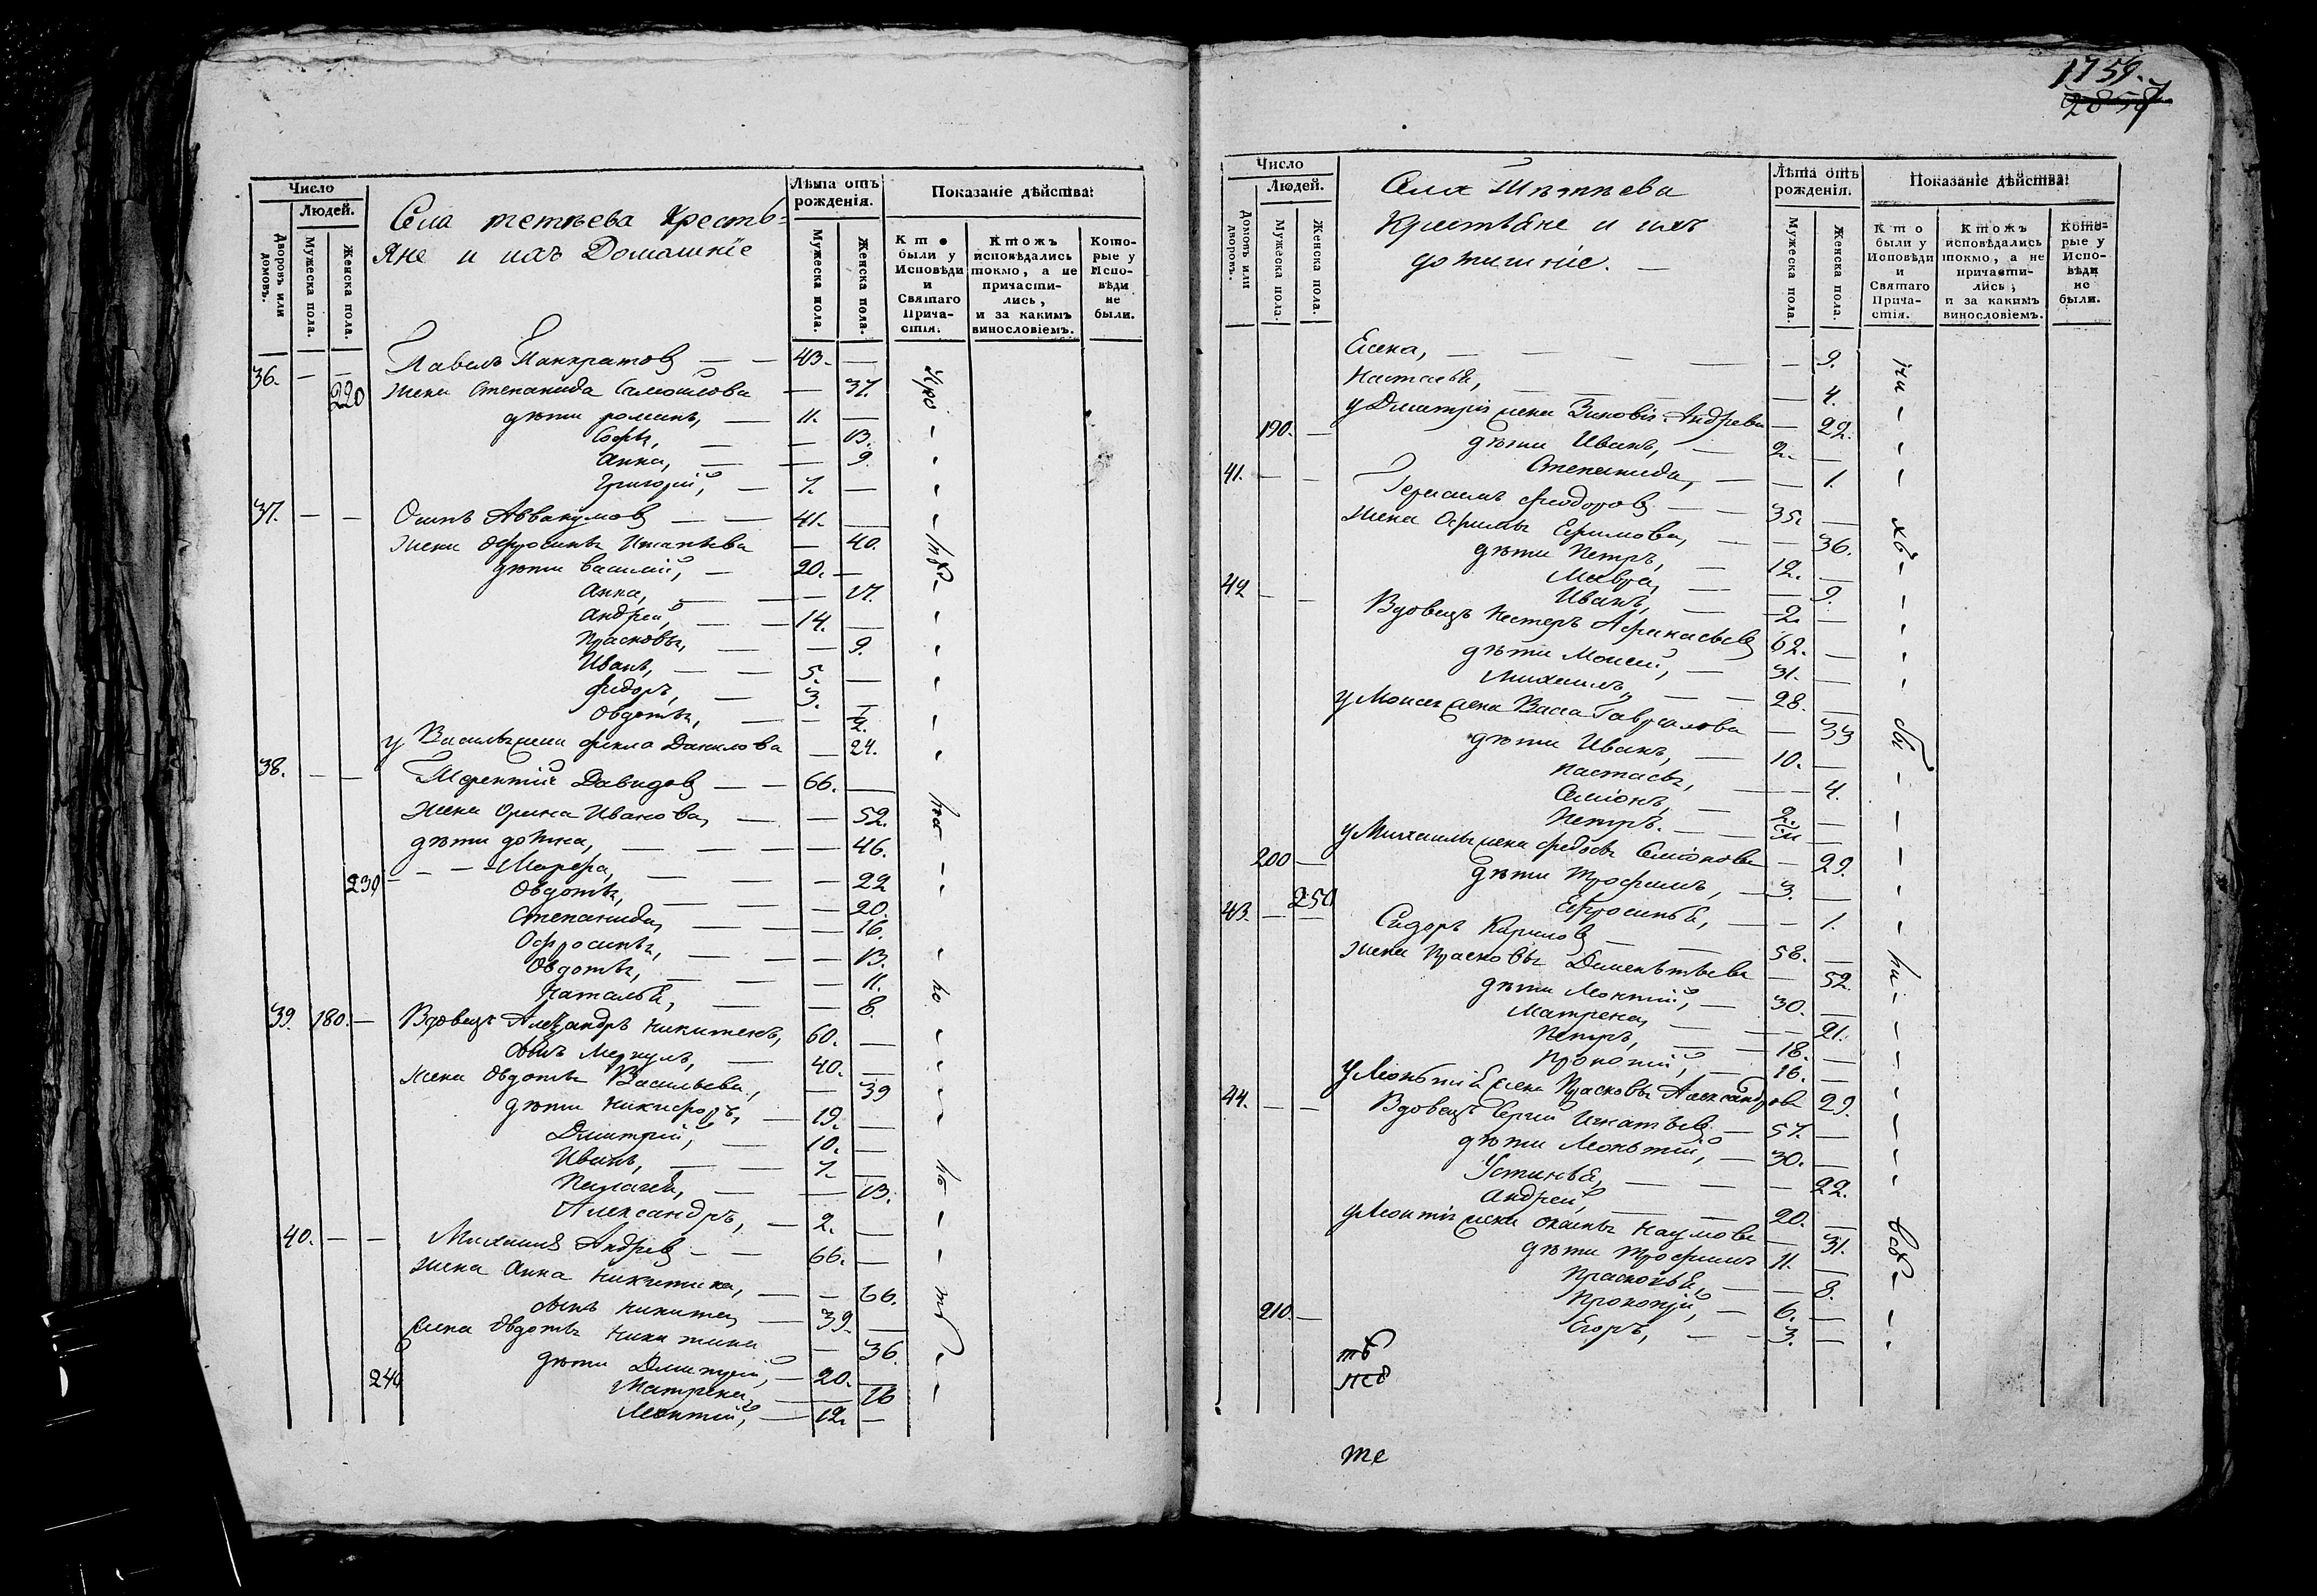 Число
Людей.
Дворовъ или домовъ.
Мужеска пола.
Женска пола.
Села тетѣева Кресть-
яне и ихъ Домашніе
Лѣта отъ рожденія.
Мужеска пола.
Женска пола.
Показаніе дѣйства:
Кто были у Исповѣди и Святаго Прича-стія.
Ктожъ исповѣдались токмо, а не причасти-лись, и за какимъ винословіемъ.
Кото-рые у Испо-вѣди не были.
36. — — Павелъ Панкратов — — 43. —
220 жена Степанида Самойлова — 37.
дѣти романъ, — 11. —
Софья, — — 13.
Анна, — — 9.
Григорій, — 7. —
37. — — Осипъ Аввакумов — — 41. —
жена Офросинья Игнатьева — 40.
дѣти Василій, — 20. —
Анна, — — 17.
Андрей, — — 14. —
Прасковья, — — 9.
Иванъ, — — 5. —
Фидоръ, — 3. —
Овдотья, — — 2.
у Василья жена Фекла Данилова — 24.
38. — — Терентій Давидов — — 66. —
жена Орина Иванова, — — 52.
дѣти — — — 46.
239 — — — Марфа, — — — 22
Овдотья, — — — 20.
Степанида, — — — 16.
Офросинья, — — — 13.
Овдотья, — — — 11.
Наталья, — — — 8.
39. 180. — Вдовецъ Александръ Никитинъ, 60. —
сынъ Меркулъ, — 40. —
жена Овдотья Васильева, — 39
дѣти Никифоръ, — 19. —
Дмитрий, — 10. —
Иванъ, — — 7. —
Пелагея, — — 13.
Александръ, — 2. —
40. — — Михаила Андрев — — 66. —
жена Анна Никитина, — — 66.
сынъ Никита, — 39. —
жена Овдотья Никитина — 36.
дѣти Дмитрей, — 20. —
240 Матрена, — — 16
Леонтий, — 12. —
1759.
Число
Людей.
Домовъ или дворовъ.
Мужеска пола.
Женска пола.
Села Тѣтѣева
Крестьяне и ихъ
домашніе. —
Лѣта отъ рожденія.
Мужеска пола.
Женска пола.
Показаніе дѣйства:
Кто были у Исповѣди и Святаго Прича-стія.
Ктожъ исповѣдались токмо, а не причасти-лись, и за какимъ винословіемъ.
Кото-рые у Испо-вѣди не были.
Елена, — — — — — 9.
Настасья, — — — — 4.
у Дмитрія жена Зиновія Андрева — 22.
190. — дѣти Иванъ, — 2. —
Степанида, — — 1.
41. — — Герасимъ Фиодоров — — 35. —
жена Офимья Ефимова, — — 36.
дѣти Петръ, — 12. —
Мавра, — — 9.
Иванъ, — 2. —
42 — — Вдовецъ Нестеръ Афанасьев 62. —
дѣти Моисей, — 31. —
Михаилъ, — — 28. —
у Моисея жена Васса Гаврилова — 33
дѣти Иванъ, — 10. —
Настасья, — — 4.
Семіонъ, — 2. —
Петръ. — —
у Михаилы жена Федосья Семіонова — 29.
200 — дѣти Трофимъ, — 3. —
250 Ефросинья, — — 1.
43. — — Сидоръ Кирилов — — 58. —
жена Прасковья Деменьтьева — 52.
дѣти Леонтий, — 30. —
Матрена, — — 21.
Петръ, — — 18. —
Прокопій, — 16. —
у Леонтия жена Прасковья Александрова 29.
44. — — Вдовецъ Сергий Игнатьев — 57. —
дѣти Леоньтий, — 30. —
Устинья, — — — 22.
Андрей, — — 20. —
у Леонтія жена Наумова — 31.
дѣти Трофимъ 11. —
Прасковья, — — 8.
210. — Прокопій, — 6. —
Егоръ, — — 3. —
те